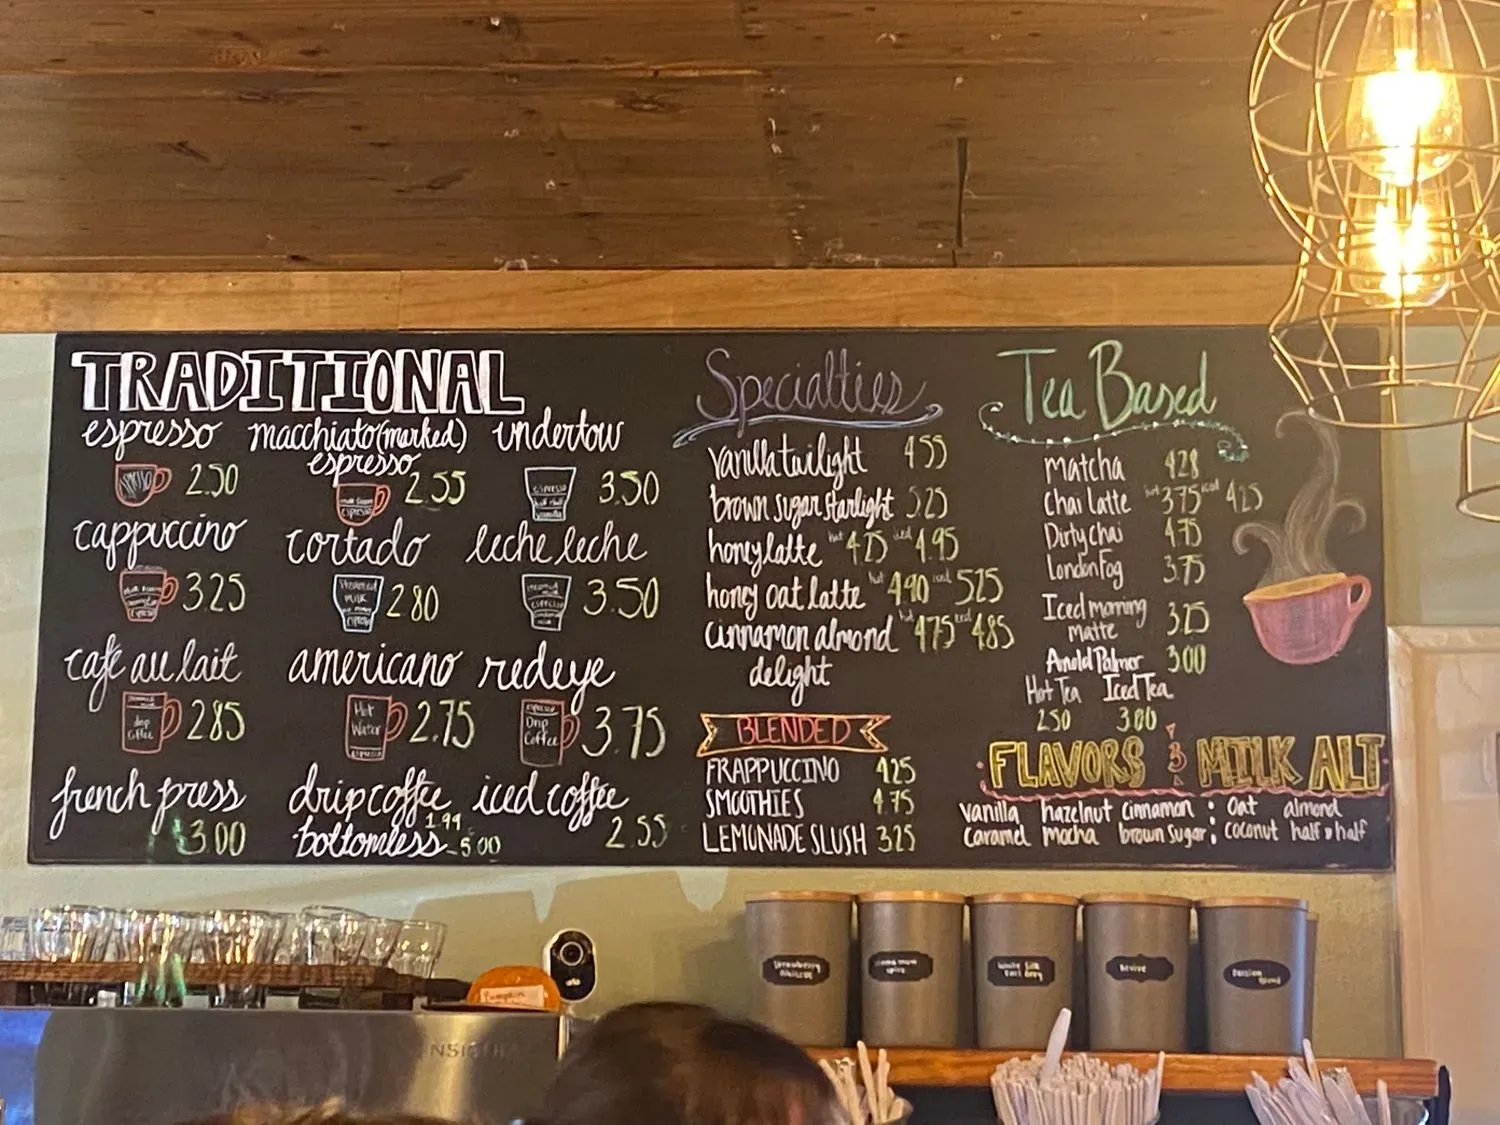 TRADITIONAL
espresso
2.50
macchiato (marked)
espresso
2.55
undertow
3.50
cappuccino
3.25
cortado
2.80
leche leche
3.50
café au lait
2.85
americano
2.75
redeye
3.75
french press
3.00
drip coffee 1.99
bottomless 5.00
iced coffee
2.55
espresso
espresso
steamed
milk
espresso
drip
coffee
Hot
Water
espresso
espresso
Drip
Coffee
Specialties
vanilla twilight 4.55
brown sugar starlight 5.25
honey latte hot 4.75 iced 4.95
honey oat latte hot 4.90 iced 5.25
cinnamon almond hot 4.75 iced 4.85
delight
BLENDED
FRAPPUCCINO 4.25
SMOOTHIES 4.75
LEMONADE SLUSH 3.25
Tea Based
Matcha 4.28
Chai Latte hot 3.75 iced 4.25
Dirty chai 4.75
London Fog 3.75
Iced morning
matte 3.25
Arnold Palmer 3.00
Hot Tea Iced Tea
2.50 3.00
FLAVORS & MILK ALT
vanilla hazelnut cinnamon : oat almond
caramel mocha brown sugar : coconut half & half
Strawberry
hibiscus
White Silk
Earl Grey
Revive
arlo